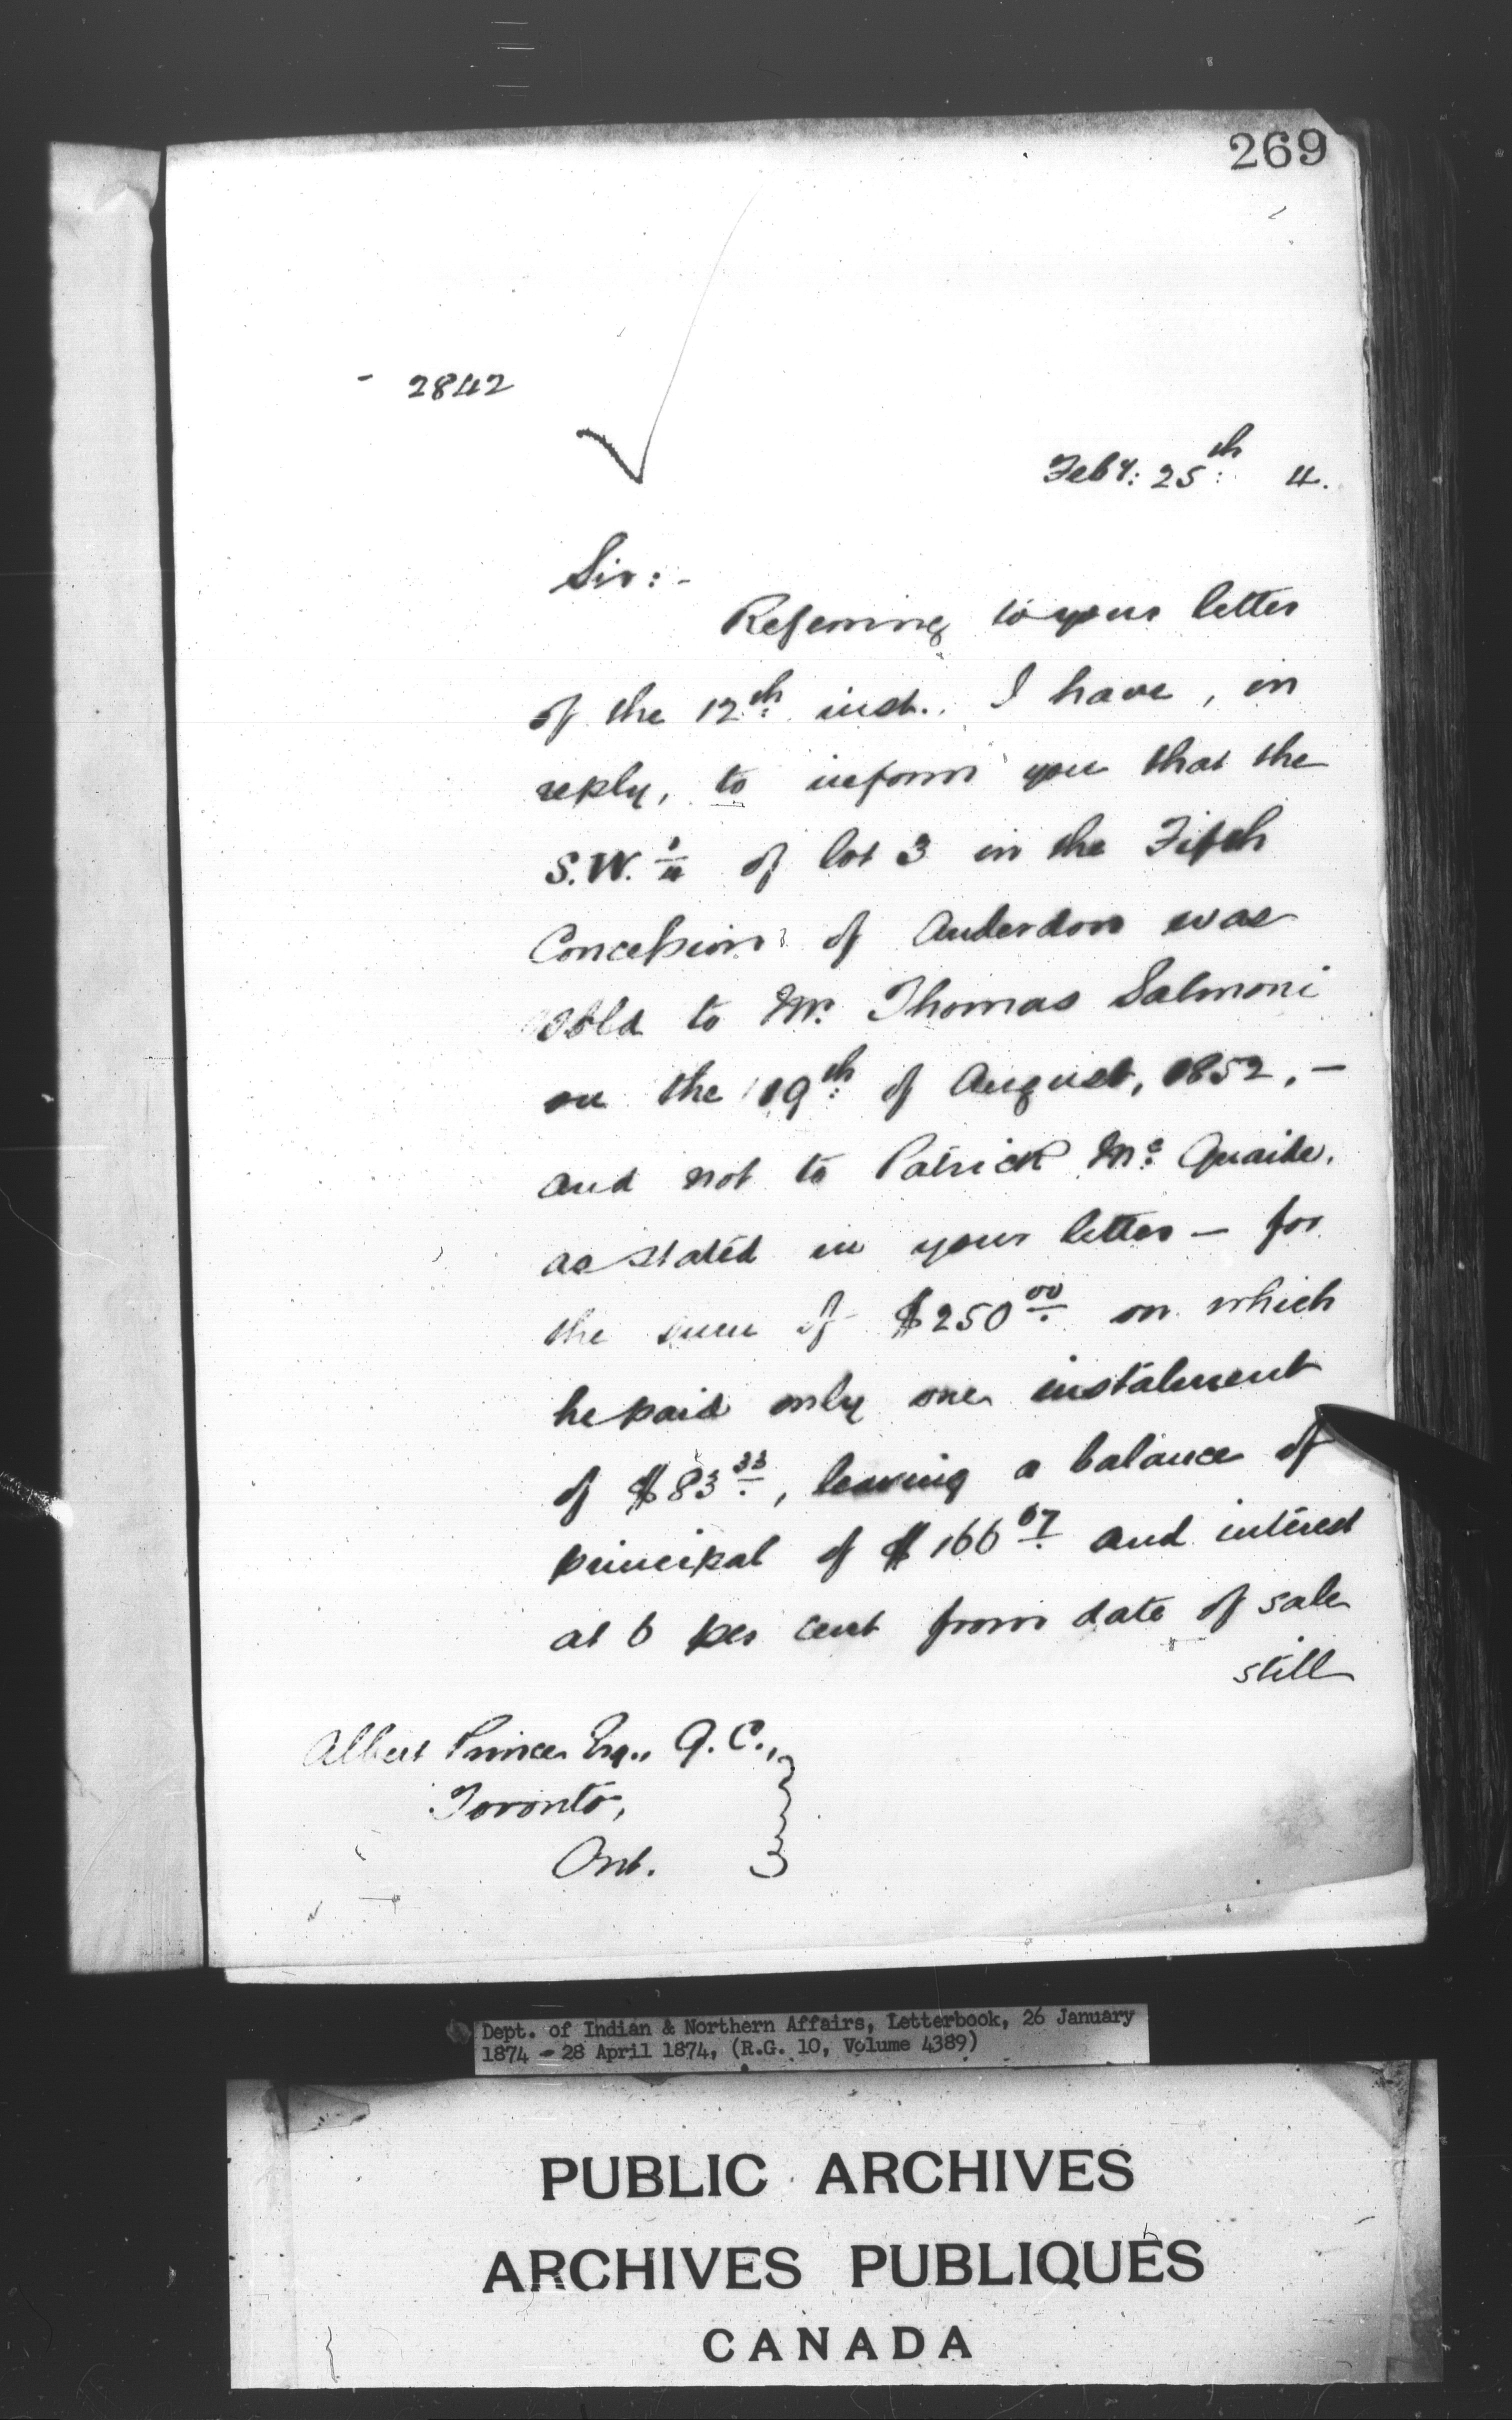 269
- 2842
Feby: 25th 4.
Sir:-
Referring to your letter
of the 12th inst., I have, in
reply, to inform you that the
S.W. 1/4 of lot 3 in the Fifth
Concession of Anderdon was
sold to Mr. Thomas Salmoni
on the 19th of August, 1852, —
and not to Patrick Mc Quaide,
as stated in your letter — for
the sum of $250.00 on which
he paid only one instalment
of $83.33, leaving a balance of
principal of $166.67 and interest
at 6 per cent from date of sale
still
Albert Prince Esq., Q.C.,
Toronto,
Ont.
Dept. of Indian & Northern Affairs, Letterbook, 26 January
1874 - 28 April 1874, (R.G. 10, Volume 4389)
PUBLIC ARCHIVES
ARCHIVES PUBLIQUES
CANADA